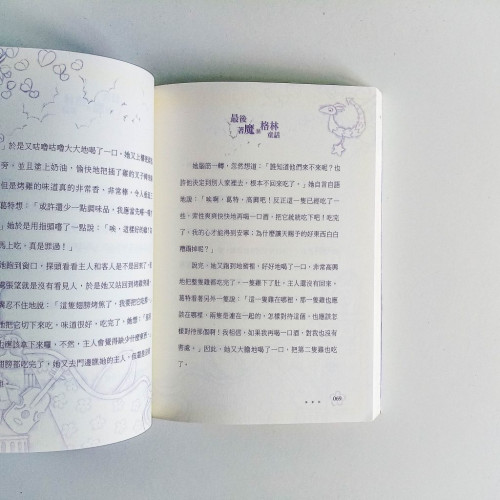 」於是又咕嚕咕嚕大大地喝了一口，她又上樓
旁。並且塗上奶油，愉快地把插了雞的叉子轉
但是烤雞的味道真的非常香，非常棒，令人
葛特想：「或許還少一點調味品，我應當先嚐一
」她於是用指頭嚐了一點說：「唉，這樣好的
馬上吃，真是罪過！」
她跑到窗口，探頭看看主人和客人是不是回來了
處張望就是沒看見，於是她又站回烤雞
忍不住地說：「這隻翅膀烤焦了，我要把它吃
她把它切下來吃，味道很好。吃完了，她想：「
應該拿下來囉，不然，主人會覺得缺少什麼
翅膀都吃完了，她又去門邊瞧她的主人，但
最後
著魔 格林
童話
她腦筋一轉，忽然想道：「誰知道他們來不來呢？也
許他決定到別人家裡去，根本不回來吃了。」她自言自語
地說：「唉啊，葛特，高興吧！反正這一隻已經吃了一
些，索性爽爽快快地再喝一口酒，把它統統吃下吧！吃完
了，我的心才能得到安寧；為什麼讓天賜予的好東西白白
糟蹋掉呢？」
說完，她又跑到地窖裡，好好地喝了一口，非常高興
地把整隻雞吃完了。一隻雞下了肚，主人還沒有回來，
葛特看著另外一隻說：「這一隻雞在哪裡，那一隻雞也應
該在哪裡，兩隻是連在一起的，怎樣對待這個，也應該怎
樣對待那個啊！我相信，如果我再喝一口酒，對我也沒有
害處。」因此，她又大膽地喝了一口，把第二隻雞也吃
了。
069